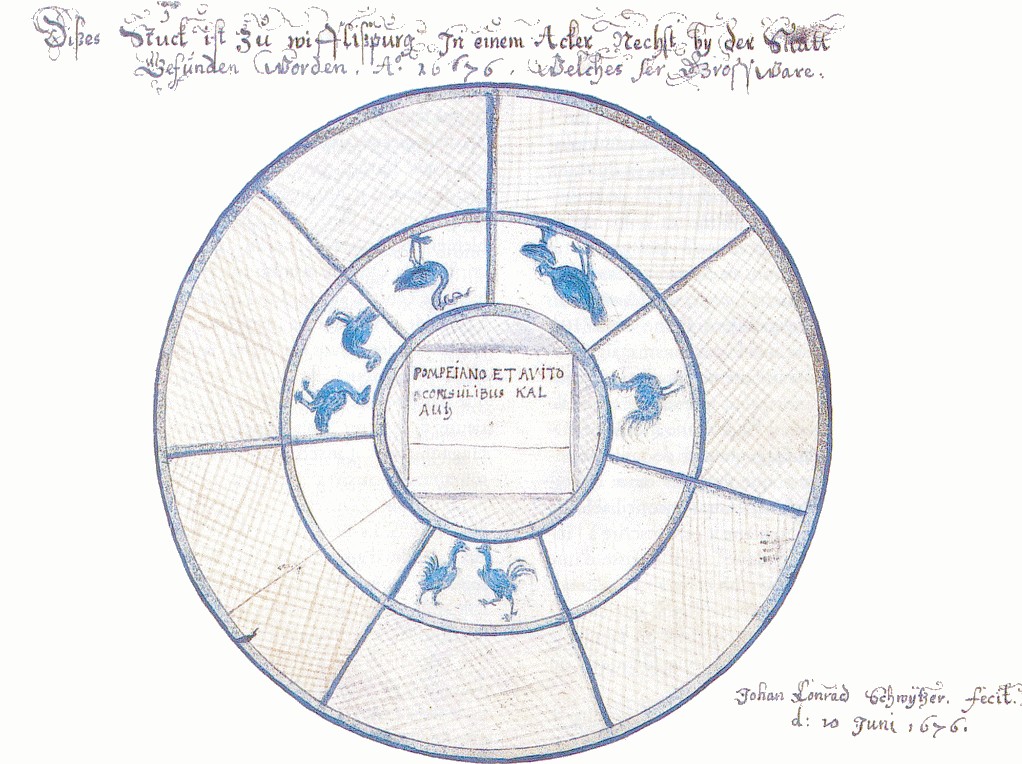 Dißes Stuck ist Zu wifflißpurg In einem Acker Nechst by der Statt
Gefunden Worden. Aº. 1676. Welches ser Gross Ware.
POMPEIANO ET AVITO
CONSULIBUS KAL
AUG
Johan Conrad Schwÿtzer. fecit.
d: 10 Juni 1676.